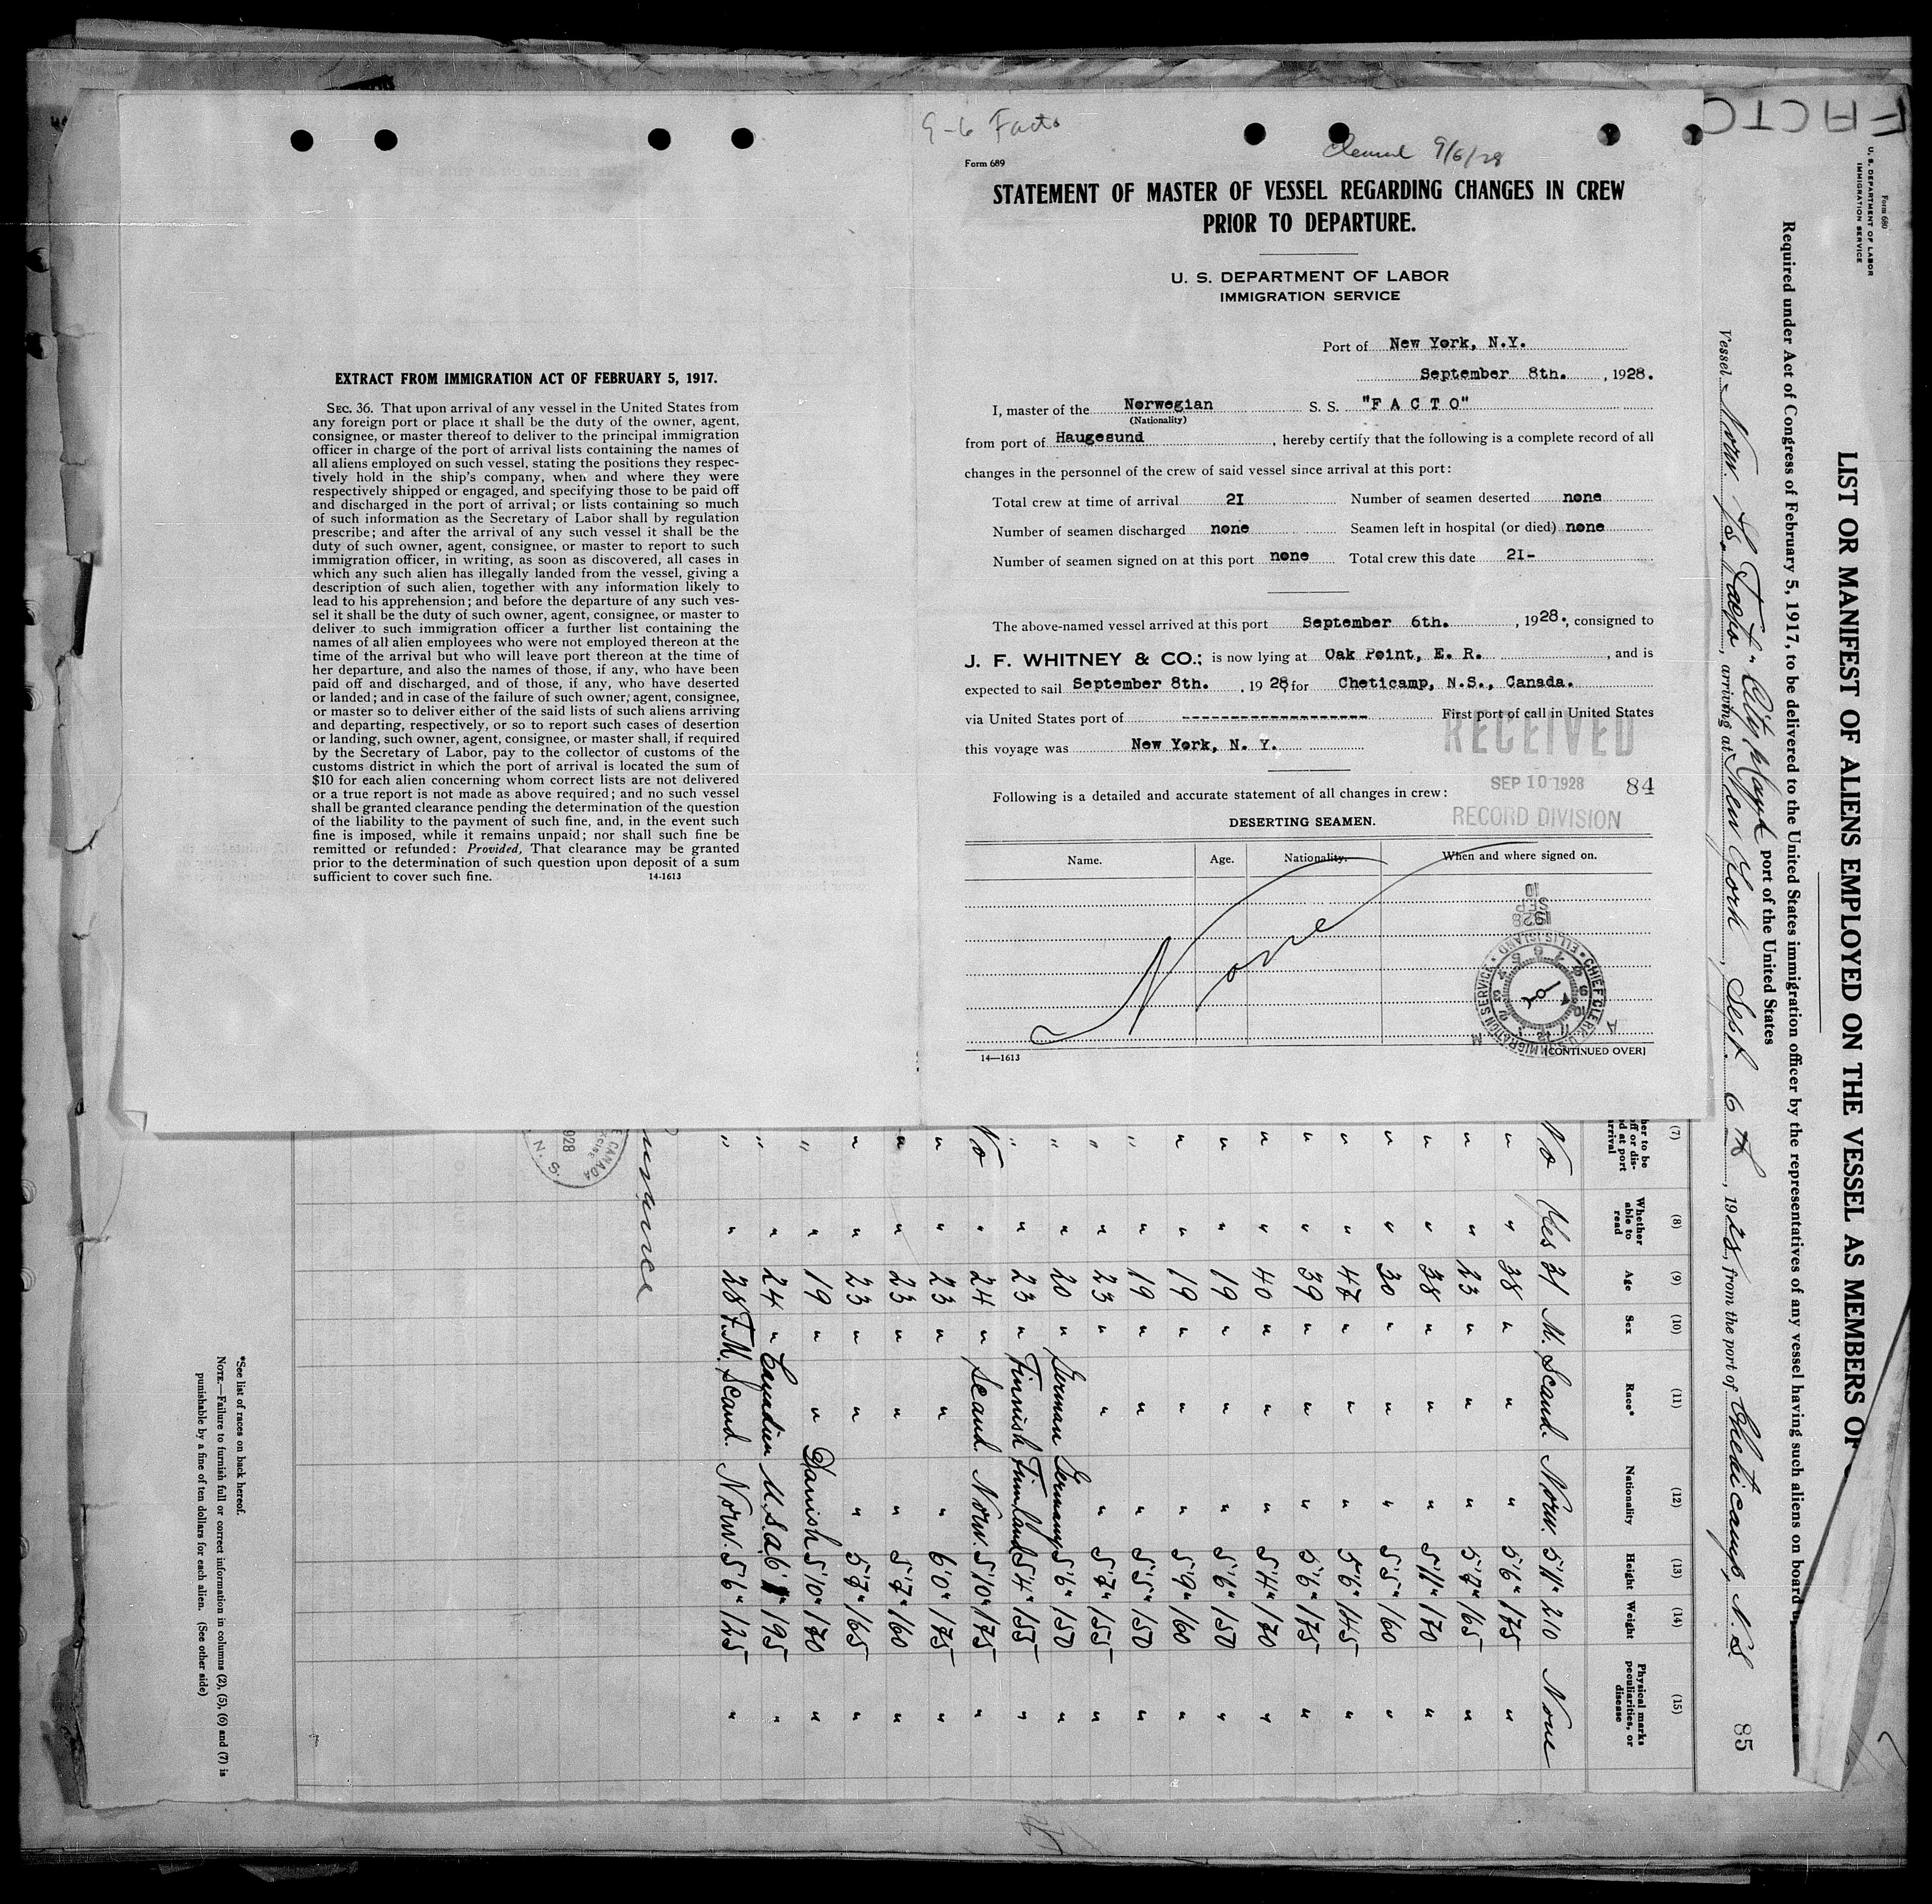 9-6 Facto
Cleared 9/6/28
Form 689
STATEMENT OF MASTER OF VESSEL REGARDING CHANGES IN CREW
PRIOR TO DEPARTURE.
U. S. DEPARTMENT OF LABOR
IMMIGRATION SERVICE
Port of New York, N.Y.
September 8th. , 1928.
I, master of the Norwegian S. S. "F A C T O"
(Nationality)
from port of Haugesund , hereby certify that the following is a complete record of all
changes in the personnel of the crew of said vessel since arrival at this port:
Total crew at time of arrival 2I Number of seamen deserted none
Number of seamen discharged none Seamen left in hospital (or died) none
Number of seamen signed on at this port none Total crew this date 2I-
The above-named vessel arrived at this port September 6th. , 1928., consigned to
J. F. WHITNEY & CO.; is now lying at Oak Point, E. R. , and is
expected to sail September 8th. , 1928, for Cheticamp, N.S., Canada.
via United States port of ------------------- First port of call in United States
this voyage was New York, N. Y.
RECEIVED
SEP 10 1928 84
RECORD DIVISION
Following is a detailed and accurate statement of all changes in crew:
DESERTING SEAMEN.
Name. Age. Nationality. When and where signed on.
None
SEP 10 1928
CHIEF CLERK U.S. IMMIGRATION SERVICE ELLIS ISLAND
14—1613 [CONTINUED OVER]
EXTRACT FROM IMMIGRATION ACT OF FEBRUARY 5, 1917.
SEC. 36. That upon arrival of any vessel in the United States from
any foreign port or place it shall be the duty of the owner, agent,
consignee, or master thereof to deliver to the principal immigration
officer in charge of the port of arrival lists containing the names of
all aliens employed on such vessel, stating the positions they respec-
tively hold in the ship's company, when and where they were
respectively shipped or engaged, and specifying those to be paid off
and discharged in the port of arrival; or lists containing so much
of such information as the Secretary of Labor shall by regulation
prescribe; and after the arrival of any such vessel it shall be the
duty of such owner, agent, consignee, or master to report to such
immigration officer, in writing, as soon as discovered, all cases in
which any such alien has illegally landed from the vessel, giving a
description of such alien, together with any information likely to
lead to his apprehension; and before the departure of any such ves-
sel it shall be the duty of such owner, agent, consignee, or master to
deliver to such immigration officer a further list containing the
names of all alien employees who were not employed thereon at the
time of the arrival but who will leave port thereon at the time of
her departure, and also the names of those, if any, who have been
paid off and discharged, and of those, if any, who have deserted
or landed; and in case of the failure of such owner, agent, consignee,
or master so to deliver either of the said lists of such aliens arriving
and departing, respectively, or so to report such cases of desertion
or landing, such owner, agent, consignee, or master shall, if required
by the Secretary of Labor, pay to the collector of customs of the
customs district in which the port of arrival is located the sum of
$10 for each alien concerning whom correct lists are not delivered
or a true report is not made as above required; and no such vessel
shall be granted clearance pending the determination of the question
of the liability to the payment of such fine, and, in the event such
fine is imposed, while it remains unpaid; nor shall such fine be
remitted or refunded: Provided, That clearance may be granted
prior to the determination of such question upon deposit of a sum
sufficient to cover such fine. 14-1613
FACTO
Form 680
U. S. DEPARTMENT OF LABOR
IMMIGRATION SERVICE
LIST OR MANIFEST OF ALIENS EMPLOYED ON THE VESSEL AS MEMBERS OF
Required under Act of Congress of February 5, 1917, to be delivered to the United States immigration officer by the representatives of any vessel having such aliens on board
port of the United States
Vessel Norw. Facto, arriving at New York, Sept 6th, 1928, from the port of Cheticamp, N.S.
85
(7) (8) (9) (10) (11) (12) (13) (14) (15)
Whether able to read Age Sex Race* Nationality Height Weight Physical marks, peculiarities, or disease
No Yes 31 M. Scand. Norw. 5'11" 210 None
" " 38 " " " 5'6" 175 "
" " 23 " " " 5'7" 165 "
" " 38 " " " 5'11" 170 "
" " 30 " " " 5'5" 160 "
" " 47 " " " 5'6" 145 "
" " 39 " " " 5'6" 175 "
" " 40 " " " 5'4" 170 "
" " 19 " " " 5'6" 150 "
" " 19 " " " 5'9" 160 "
" " 19 " " " 5'5" 150 "
" " 23 " " " 5'7" 155 "
" " 20 " German Germany 5'6" 150 "
" " 23 " Finnish Finnland 5'4" 155 "
No " 24 " Scand Norw. 5'10" 175 "
" " 23 " " " 6'0" 175 "
" " 23 " " " 5'7" 160 "
" " 23 " " " 5'7" 165 "
" " 19 " " Danish 5'10" 170 "
" " 24 " Canadien U.S.a. 6'1" 195 "
" " 28 F.M. Scand. Norw. 5'6" 125 "
CANADA
N. S.
*See list of races on back hereof.
NOTE.—Failure to furnish full or correct information in columns (2), (5), (6) and (7) is
punishable by a fine of ten dollars for each alien. (See other side)